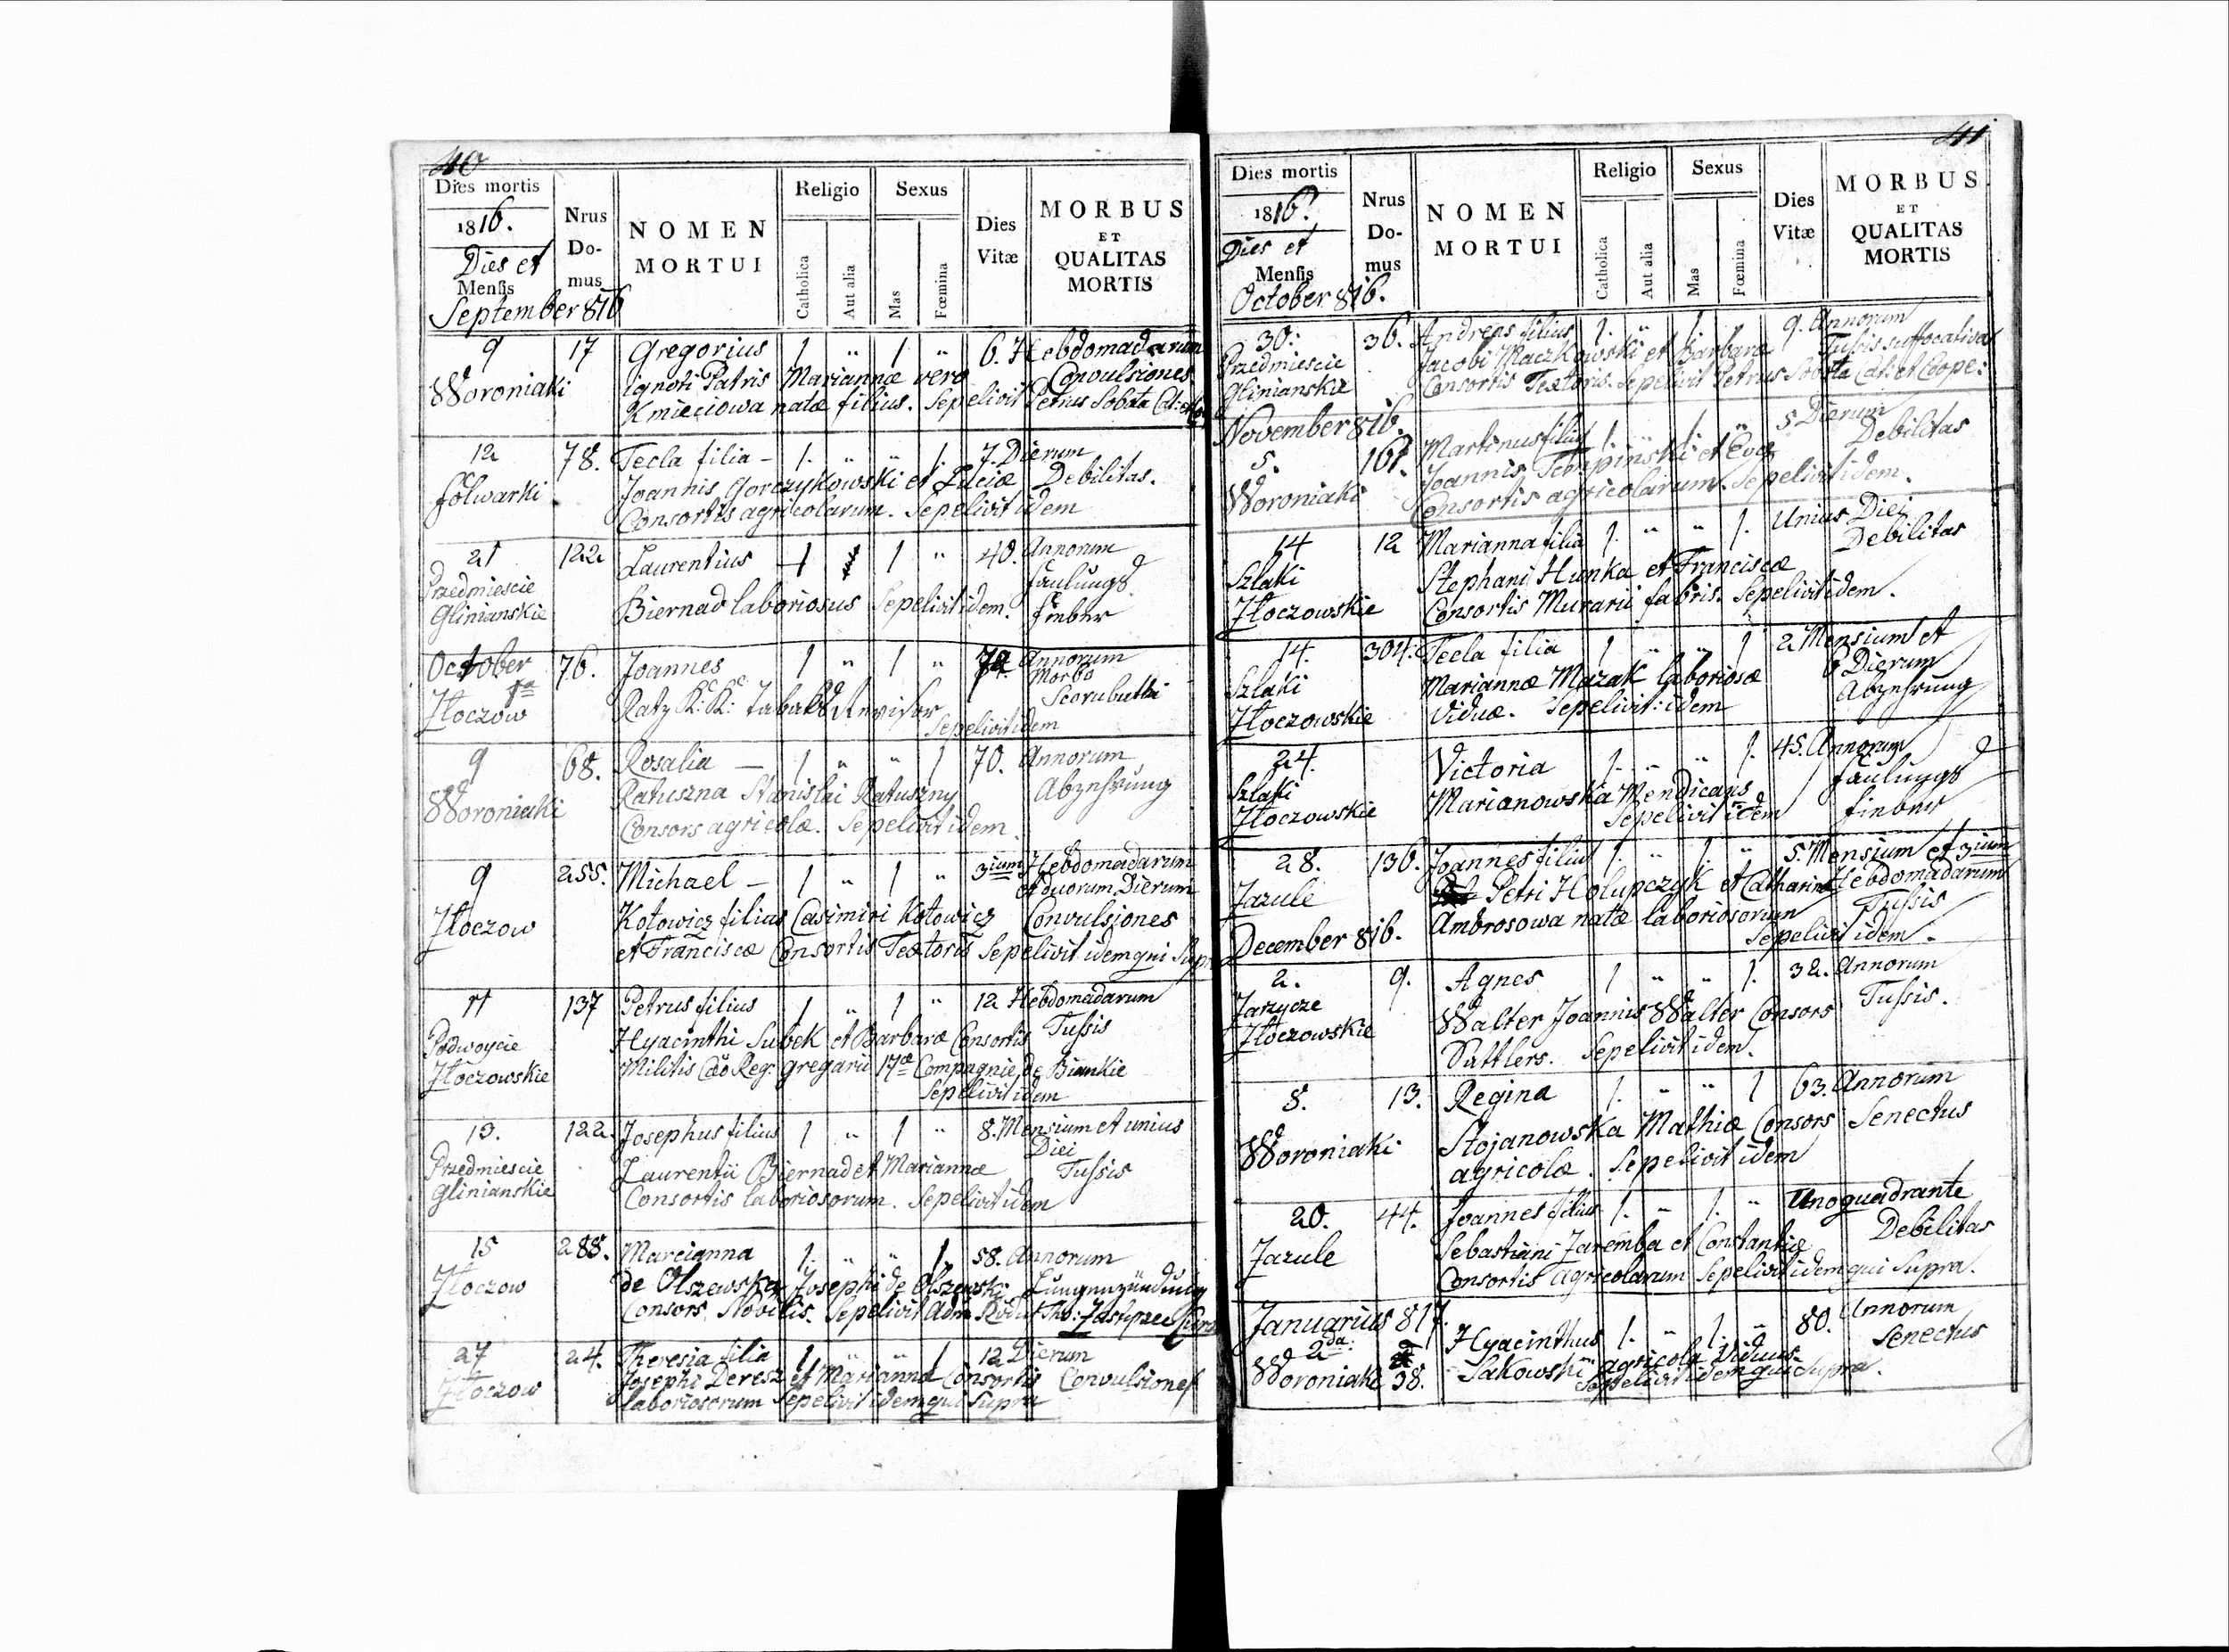 40
Dies mortis
1816.
Dies et
Mensis
September 816
Nrus
Do-
mus
NOMEN
MORTUI
Religio
Catholica
Aut alia
Sexus
Mas
Fœmina
Dies
Vitæ
MORBUS
ET
QUALITAS
MORTIS
9 17 Gregorius 1 " 1 " 6. Hebdomadarum
Woroniaki Ignoti Patris Mariannæ vero Convulsiones
Kmieciowa natæ filius. Sepelivit Petrus Sobota Cat:
12 78. Tecla filia – 1. " " 1. 7. Dierum
folwarki Joannis Gorczykowski et Luciæ Debilitas.
Consortis agricolarum. Sepelivit idem
21 122 Laurentius 1 1 " 40. Annorum
Przedmiescie faulungs
Glinianskie Biernad laboriosus Sepelivit idem. fieber
October 76. Joannes 1 " 1 " Annorum
1ma Morbo
Złoczow Ratz K: K: Tabaks Revisor Scorubutti
Sepelivit idem
9 68. Rosalia — 1 " " 1 70. Annorum
Woroniaki Ratuszna Stanislai Ratuszny Abzehrung
Consors agricolæ. Sepelivit idem.
9 255. Michael – 1 " 1 " 3ium Hebdomadarum
et duorum Dierum
Złoczow Kotowicz filius Casimiri Kotowicz Convulsiones
et Franciscæ Consortis Textoris Sepelivit idem qui Supra
11 137 Petrus filius 1 " 1 " 12 Hebdomadarum
Podwoycie Hyacinthi Subek et Barbaræ Consortis Tussis
Złoczowskie Militis Cæo Reg: gregarii 17æ Compagnie de Biankie
Sepelivit idem
13. 122. Josephus filius 1 " 1 " 8. Mensium et unius
Diei
Przedmiescie Laurentii Biernad et Mariannæ Tussis
Glinianskie Consortis laboriosorum. Sepelivit idem
15 288. Marcianna 1. " " 1. 58. Annorum
Złoczow de Olszewska Josephi de Olszewski Lungenzündung
Consors Nobilis. Sepelivit Adm Rdus Tho:
27 24. Theresia filia 1 " " 1 12 Dierum
Złoczow Josephi Deresz et Mariannæ Consortis Convulsiones
laboriosorum Sepelivit idem qui Supra
41
Dies mortis
1816.
Dies et
Mensis
October 816.
Nrus
Do-
mus
NOMEN
MORTUI
Religio
Catholica
Aut alia
Sexus
Mas
Fœmina
Dies
Vitæ
MORBUS
ET
QUALITAS
MORTIS
30. 36. Andreas filius 1. " 1. " 9. Annorum
Przedmiescie Jacobi Maczkowski et Barbaræ Tussis suffocativa
Glinianskie Consortis Textoris. Sepelivit Petrus Sobota Cat: et Coope:
November 816.
5. 161. Martinus filius 1. " 1. " 5 Dierum
Joannis et Evæ Debilitas
Woroniaki Consortis agricolarum. Sepelivit idem.
14 12 Marianna filia 1. " " 1. Unius Diei
Szlaki Stephani Hunka et Franciscæ Debilitas
Złoczowskie Consortis Murarii fabris. Sepelivit idem.
14. 304. Tecla filia 1 " " 1 2 Mensium et
Szlaki Mariannæ Mazak laboriosæ 6 Dierum
Złoczowskie Viduæ. Sepelivit: idem Abzehrung
24. Victoria 1. " " 1. 45. Annorum
Szlaki Marianowska Mendicans faulungs
Złoczowskie Sepelivit idem fieber
28. 136. Joannes filius 1. " 1 " 5. Mensium et 3ium
Zazule Petri Holupczyk et Catharinæ Hebdomadarum
Ambrosowa natæ laboriosorum Tussis
December 816. Sepelivit idem.
2. 9. Agnes 1 " " 1. 32. Annorum
Zarzycze Walter Joannis Walter Consors Tussis.
Złoczowskie Sattlers. Sepelivit idem.
8. 13. Regina 1. " " 1 63. Annorum
Woroniaki Stojanowska Mathiæ Consors Senectus
agricolæ. Sepelivit idem
20. 44. Joannes filius 1. " 1. " Uno quadrante
Zazule Sebastiani Zaremba et Constantiæ Debilitas
Consortis Agricolarum Sepelivit idem qui Supra.
Januarius 817.
2da Hyacinthus 1. " 1 " 80. Annorum
Woroniaki 38. Sakowski agricola Viduus. Senectus
Sepelivit idem qui Supra.